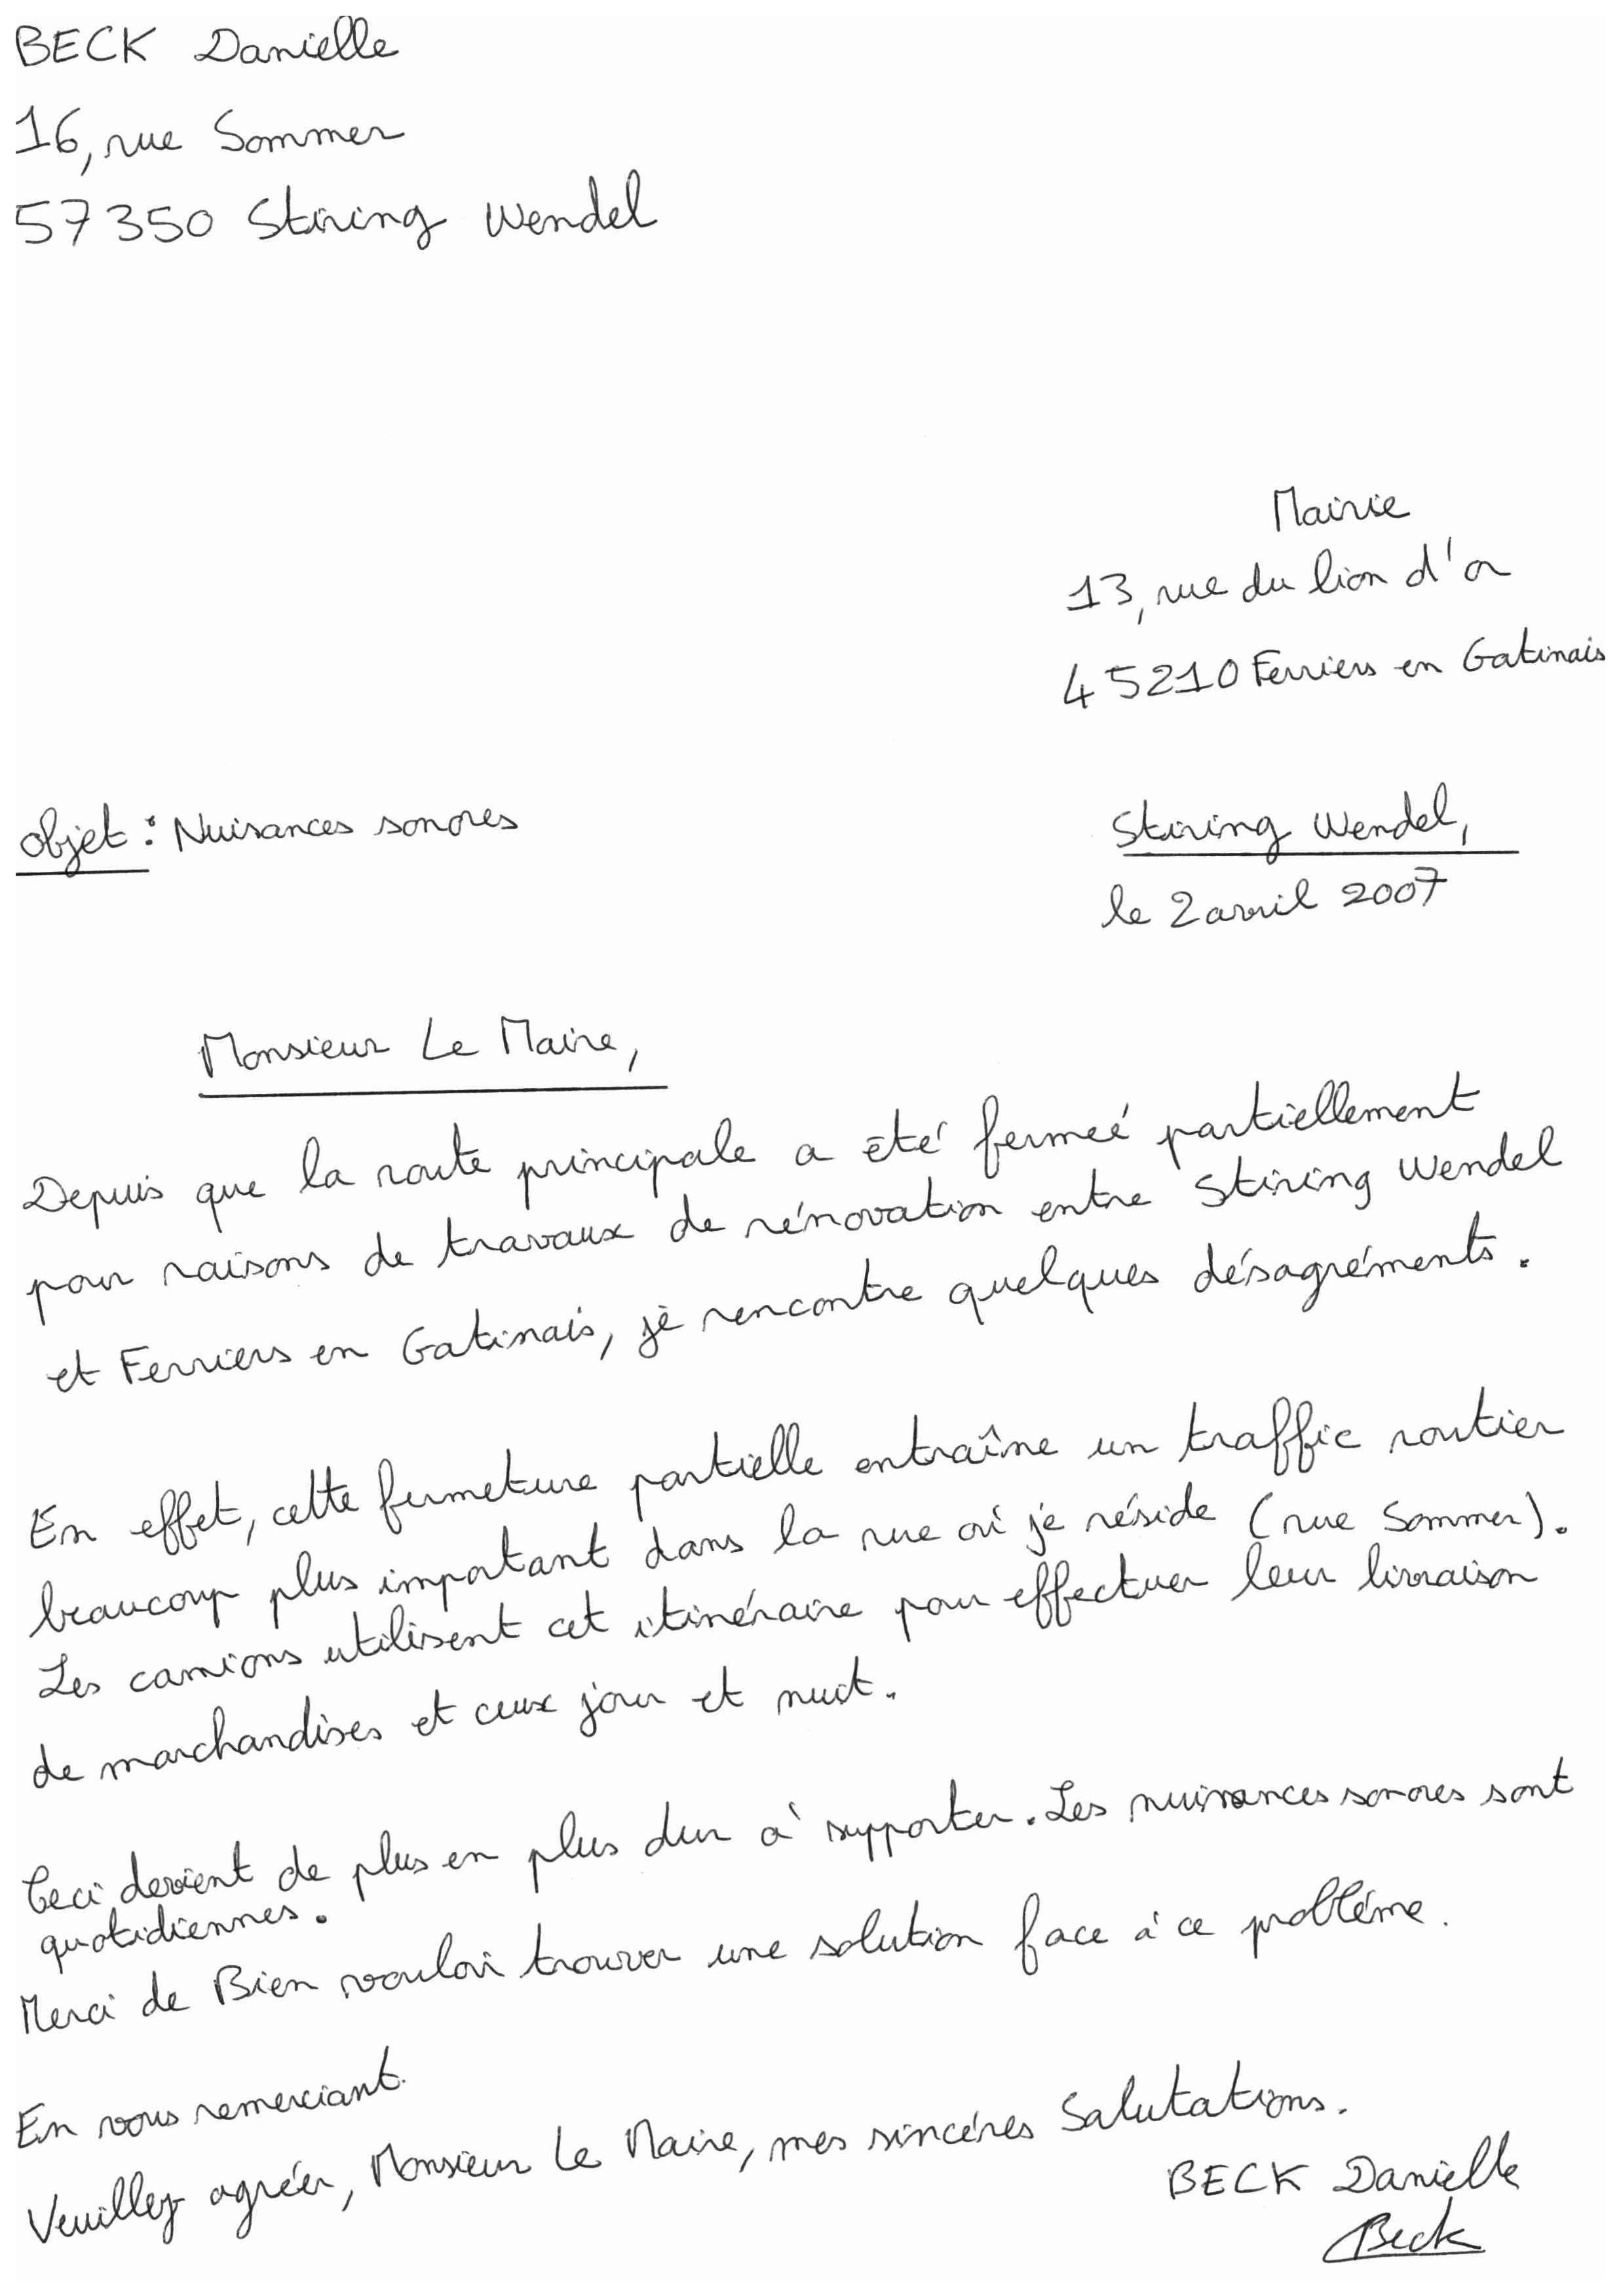 BECK Danielle
16, rue Sommer
57350 Stiring Wendel
Mairie
13, rue du lion d'or
45210 Ferriers en Gatinais
objet : Nuisances sonores
Stiring Wendel,
le 2 avril 2007
Monsieur Le Maire,
Depuis que la route principale a été fermeé partiellement
pour raisons de travaux de rénovation entre Stiring Wendel
et Ferriers en Gatinais, je rencontre quelques désagréments.
En effet, cette fermeture partielle entraîne un traffic routier
beaucoup plus important dans la rue où je réside (rue Sommer).
Les camions utilisent cet itinéraire pour effectuer leur livraison
de marchandises et ceux jour et nuit.
Ceci devient de plus en plus dur à supporter. Les nuisances sonores sont
quotidiennes.
Merci de Bien vouloir trouver une solution face à ce problème.
En vous remerciant.
Veuillez agréer, Monsieur Le Maire, mes sincéres Salutations.
BECK Danielle
Beck